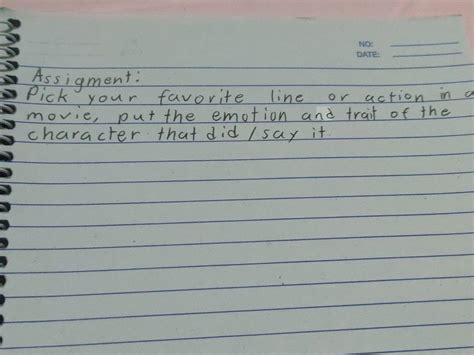 NO:
DATE:
Assigment:
Pick your favorite line or action in a
movie, put the emotion and trait of the
character that did / say it